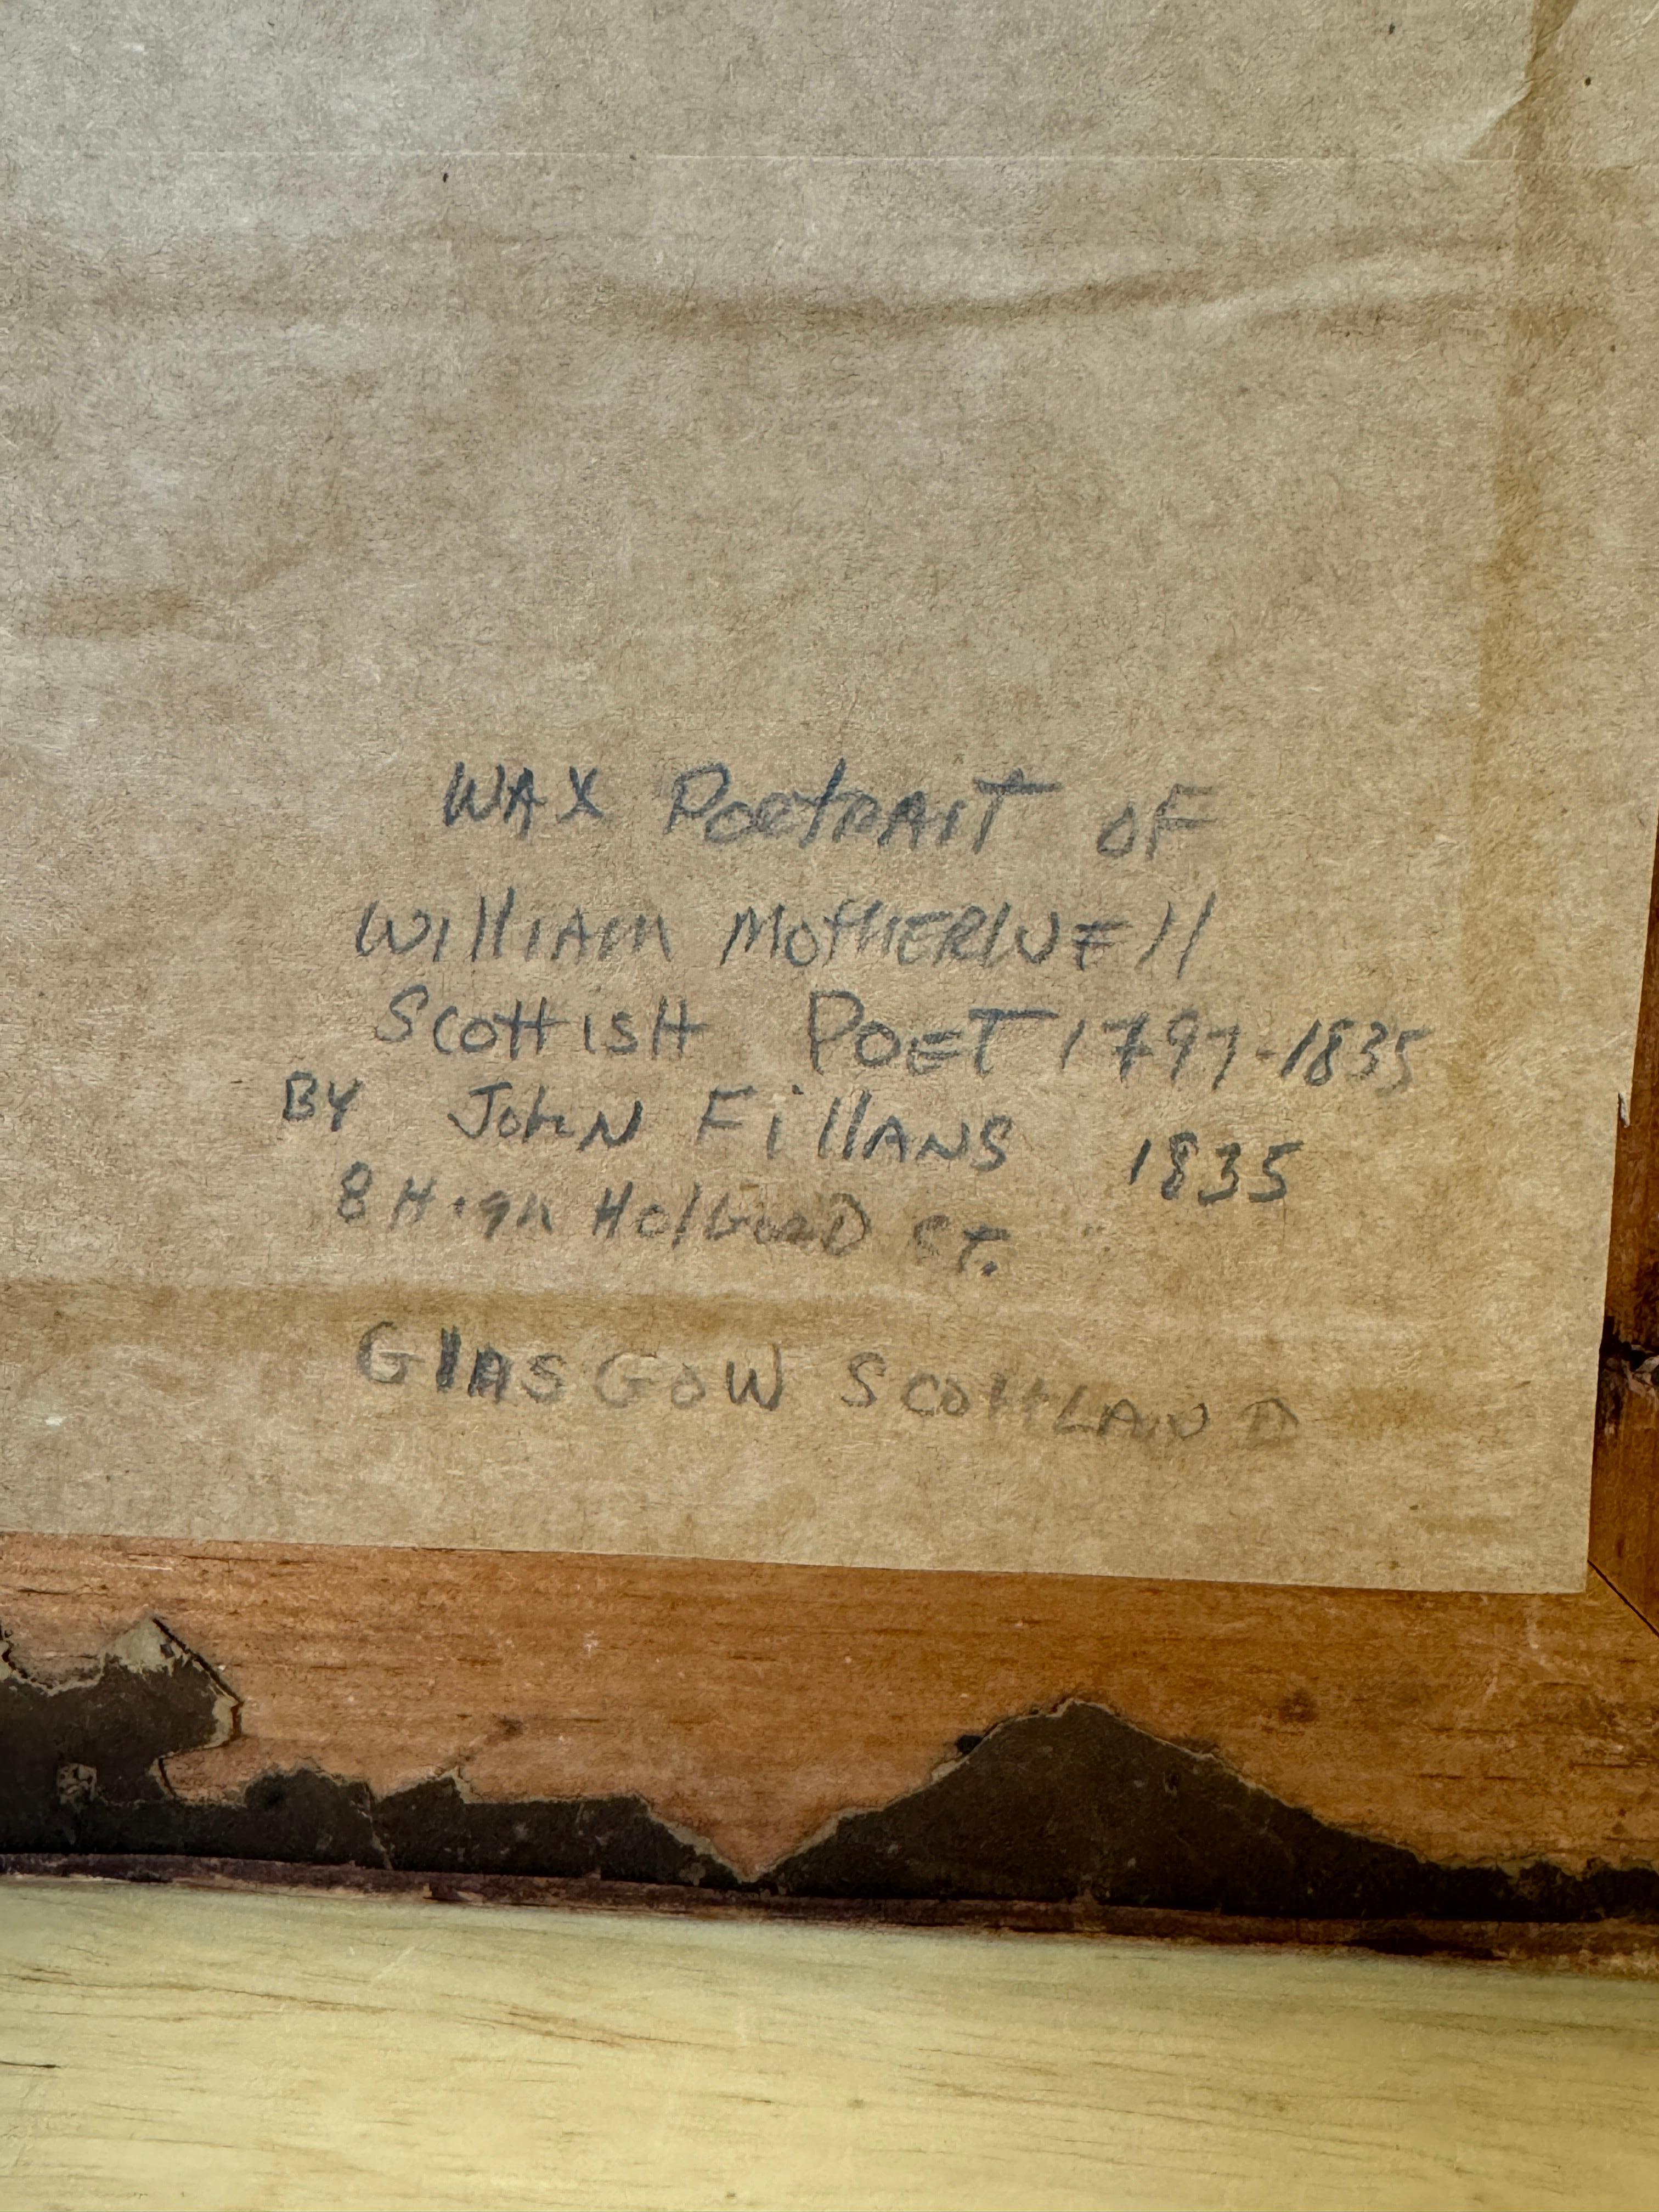 WAX PORTRAIT OF
WilliAM MotHERWEll
ScottisH POET 1797-1835
BY JohN FillANS 1835
8 High HolboRD ST.
GlASGOW SCOttLAND